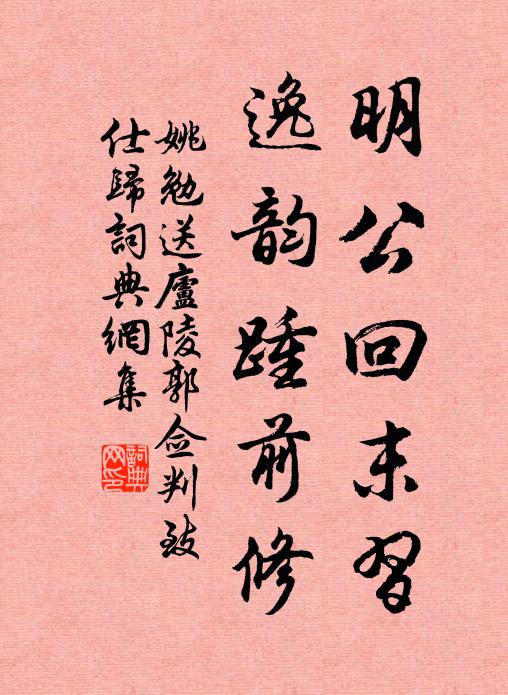 明公回末習
逸韵踵前修
姚勉送廬陵郭佥判致
仕歸詞典網集
詞典
网印